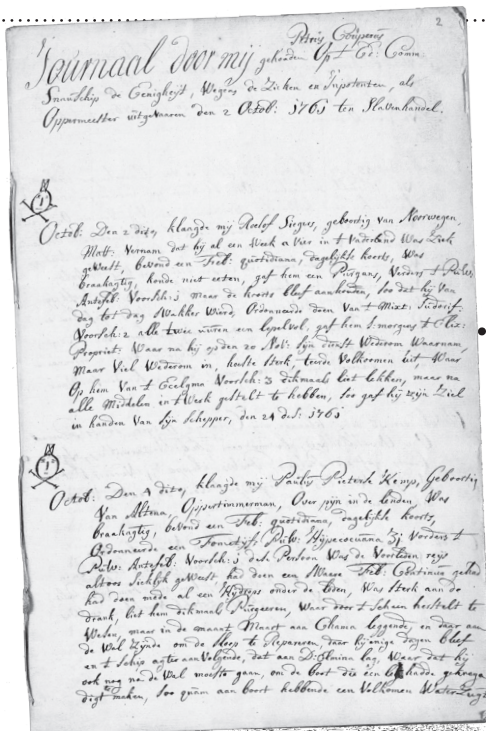 2
Petrus Couperus
Journaal door mij gehouden Op 't Ed: Comm
Snauschip de Eenigheijt, Wegens de Zieken en Inpotenten, als
Oppermeester uitgevaaren den 2 Octob: 1761 ten Slavenhandel.
1
Octob: Den 2 dito, klaagde mij Roelof Siegers, geboortig van Noorwegen,
Matt: Vernam dat hij al een Week a Vier in 't Vaderland Was Ziek
geweest, bevond een Feb: quotidiana, dagelijkse koorts, Was
braakagtig, konde niet eeten, gaf hem een Purgans, Verders 't Pulv:
Antifeb: Voorsch: 1 maar de koorts bleef aanhouden, soo dat hij Van
dag tot dag Swakker Wierd, Ordonneerde doen Van 't Mixt:
Voorsch: 2 alle twee uuren een lepel vol: gaf hem s'morgens 't Elix:
Propriet: Waar na hij op den 20 Nov: sijn dienst Wederom Waarnam,
Maar Viel Wederom in, hoeste sterk, teerde Volkoomen uit, Waar
Op hem Van 't Ecelgma Voorsch: 3 dikmaals liet lekken, maar na
alle Middelen in 't Werk gestelt te hebben, soo gaf hij zijn Ziel
in handen Van sijn Schepper, den 24 des: 1761
1
Octob: Den 4 dito, klaagde mij Paulus Pieterse Kemp, Geboortig
Van Altena, Oppertimmerman, Over pijn in de lenden, Was
braakagtig, bevond een Feb: quotidiana, dagelijkse koorts,
Ordonneerde een Pulv: Hypecocuana, Verders 't
Pulv: Antifeb: Voorsch: 1 dese Persoon Was de Voorleden reijs
altoos Sieklijk geweest, had doen een Feb: Continua gehad
had doen mede al een Hydrops onder de leden, Was sterk aan de
drank, liet hem dikmaal Purgeeren, Waar door 't scheen herstelt te
Wesen, maar in de maant Maart aan Chama leggende, en daar aan
de Wal Zijnde om de Sloep te Repareren, daar hij enige dagen bleef
en 't Schip agter aan Volgende, dat aan D: Elmina lag, Waar dat hij
ook nog na de Wal moeste gaan, om de boot die een schadde gekreegen
digt te maken, soo quam aan boort hebbende een Volkomen